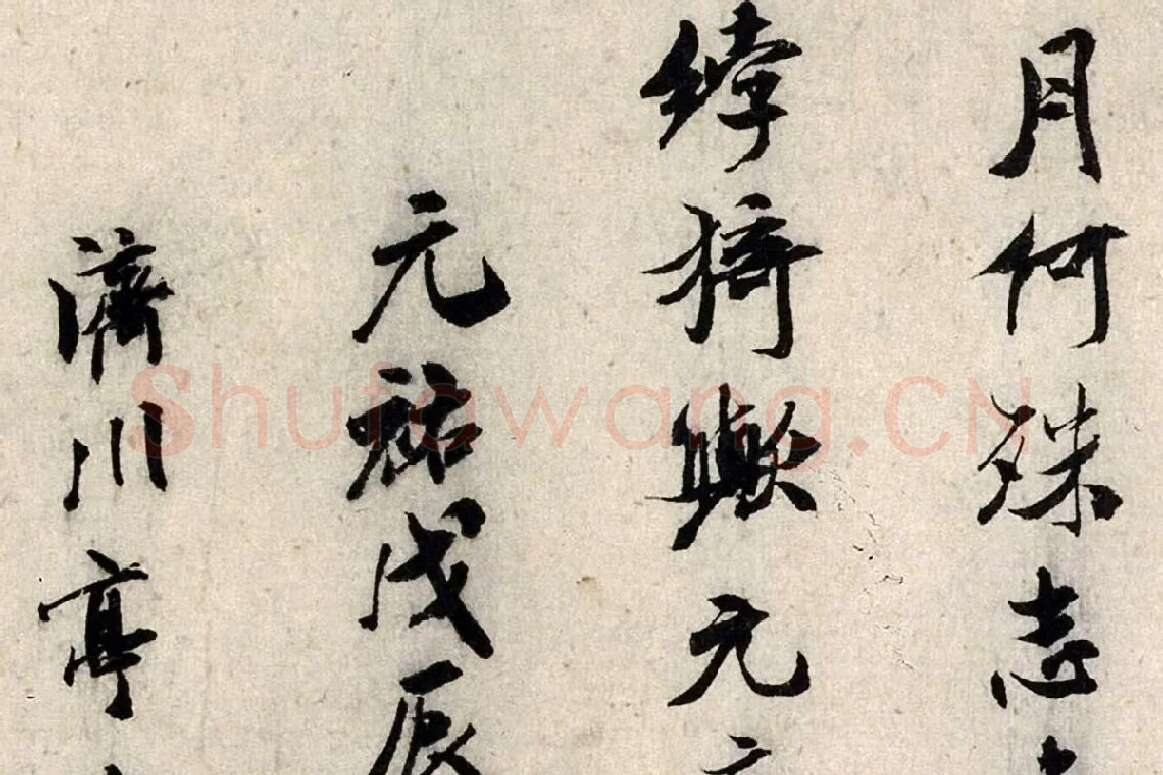 月何殊志
綷猗歟元
元祐戊辰
濟川亭
Shufawang.CN